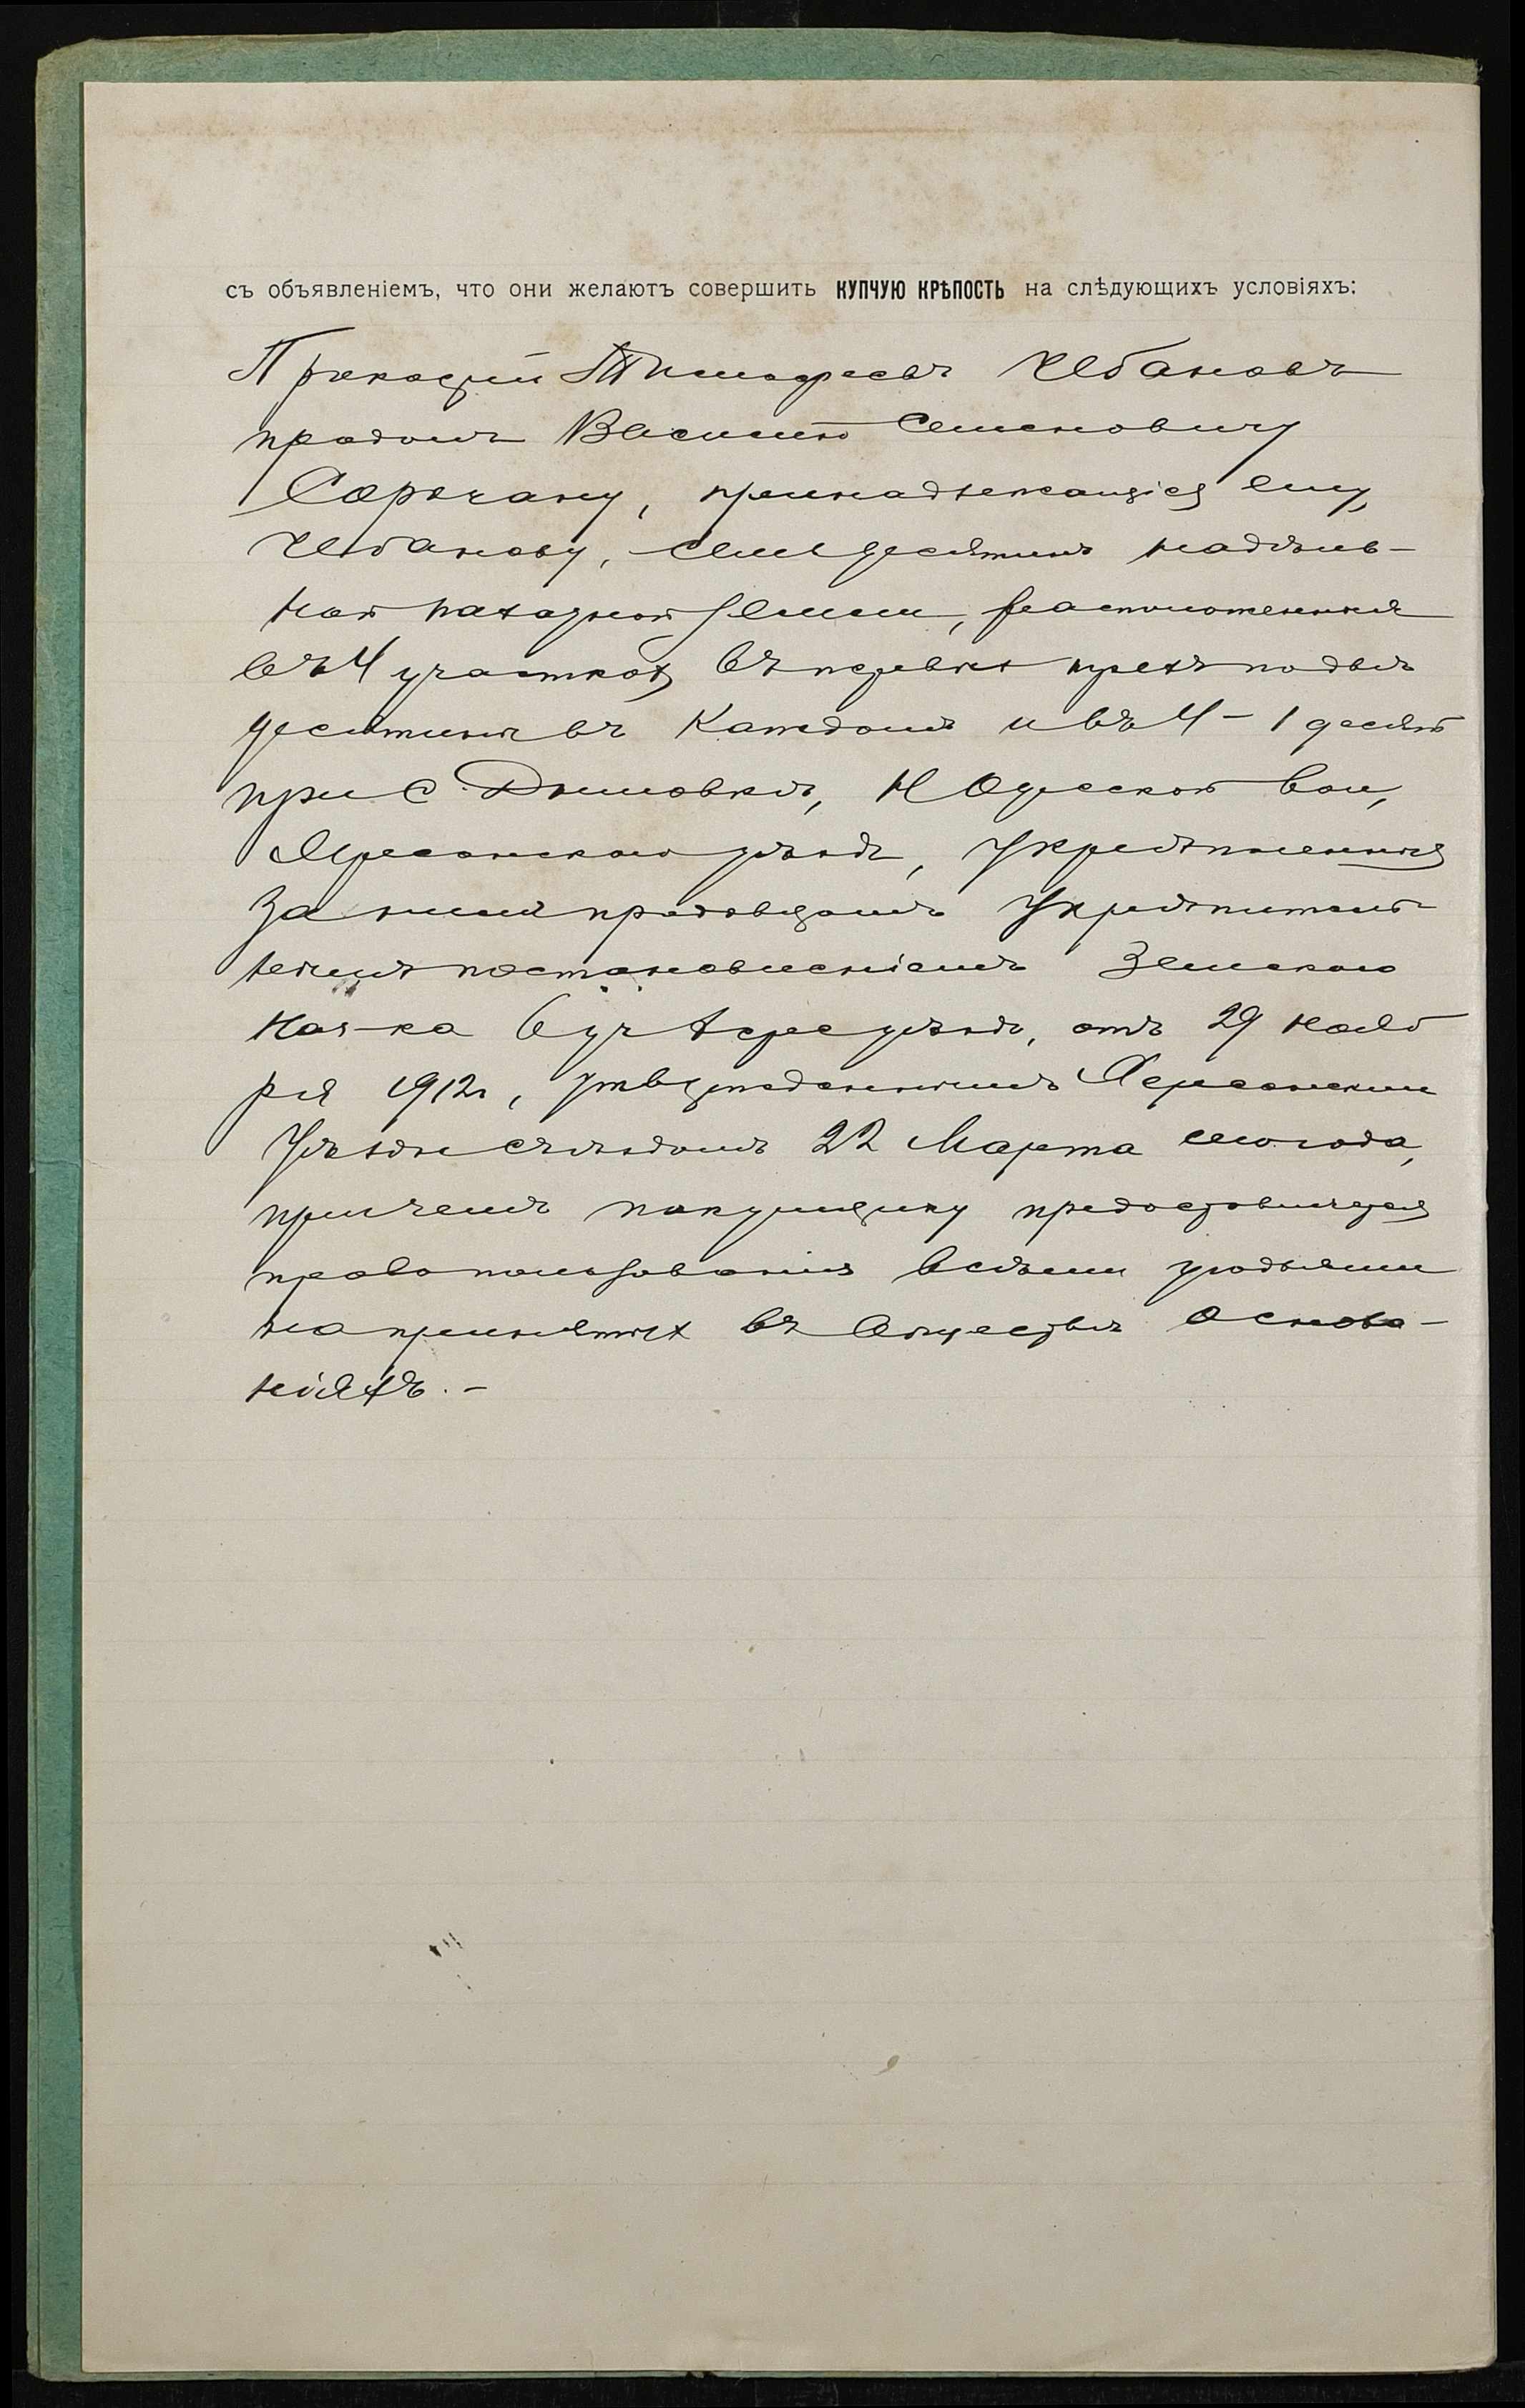 съ объявленіемъ, что они желаютъ совершить КУПЧУЮ КРѢПОСТЬ на слѣдующихъ условіяхъ:
Прокофій Тимофеевъ Чебановъ
продалъ Василію Семеновичу
Сорочану, принадлежащія ему,
Чебанову, семь десятинъ надѣль-
ной пахатной земли, расположенныя
въ 4 участках въ первых трехъ по двѣ
десятины въ каждомъ и въ 4 – 1 десят
при с. Дымовкѣ, Н Одесской вол,
Херсонскаго уѣзда, укрѣпленныя
за нимъ продавцомъ укрѣпитель
нымъ постановленіемъ Земскаго
Нач-ка 6 уч Херс уѣзда, отъ 29 Нояб
ря 1912 г, утвержденнымъ Херсонским
Уѣздн съѣздомъ 22 Марта сего года,
причемъ покупщику предоставляется
право пользованія всѣми угодьями
на принятых въ обществѣ основа-
ніяхъ. –